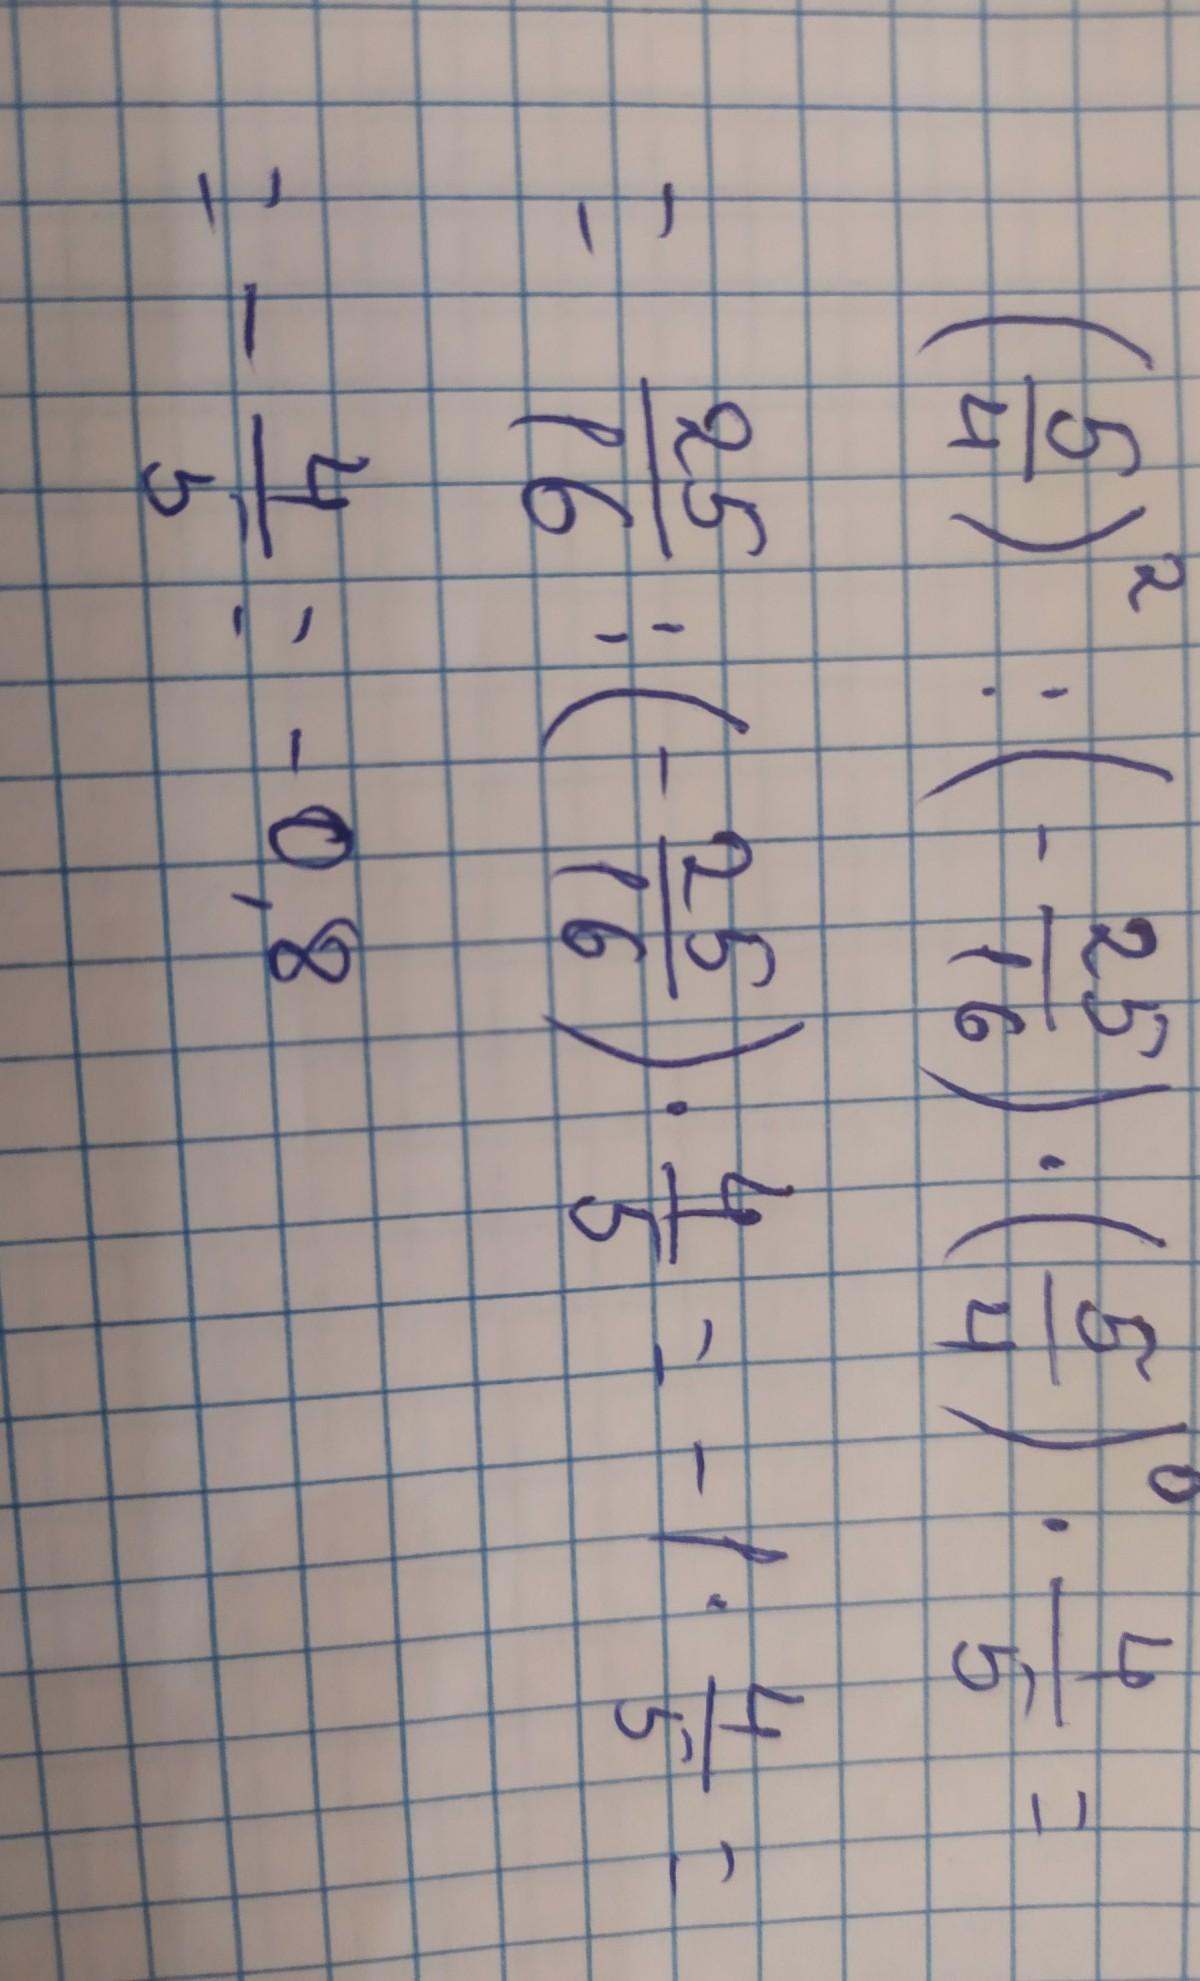 (5/4)² : (- 25/16) · (5/4)⁰ · 4/5 =
= 25/16 : (- 25/16) · 4/5 = - 1 · 4/5 =
= - 4/5 = - 0,8